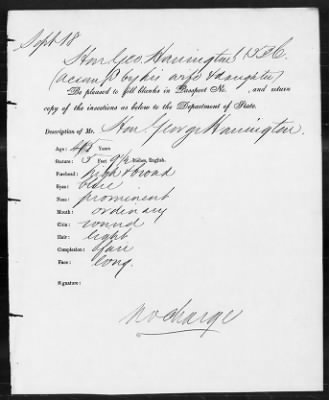 Sept 18
Hon Geo. Harrington
(accomp by his wife & daughter)
Be pleased to fill blanks in Passport No. , and return
copy of the insertions as below to the Department of State.
Description of Mr. Hon George Harrington.
Age: 45 Years
Stature: 5 Feet 9½ Inches, English.
Forehead: high & broad
Eyes: blue
Nose: prominent
Mouth: ordinary
Chin: round
Hair: light
Complexion: fair
Face: long.
Signature:
no charge